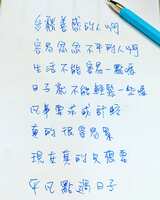 多愁善感的人啊
容易忿忿不平的人啊
生活不能容易一點嗎
日子就不能輕鬆一些嗎
凡事要求或計較
真的很容易累
現在真的只想要
平凡點過日子